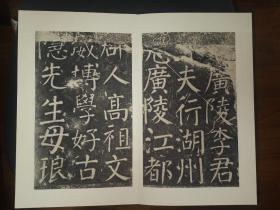 廣陵李君
夫行湖州
廣陵江都
人高祖文
博學好古
先生母琅